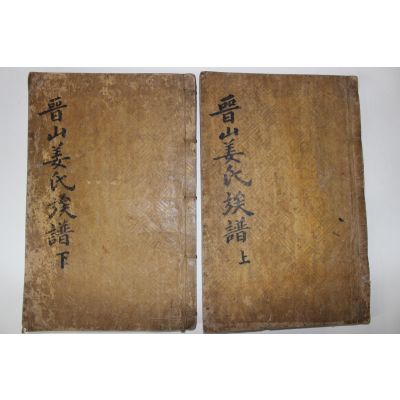 晋山姜氏族譜 上
晋山姜氏族譜 下